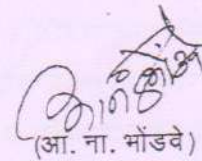 (आ. ना. भोंडवे)